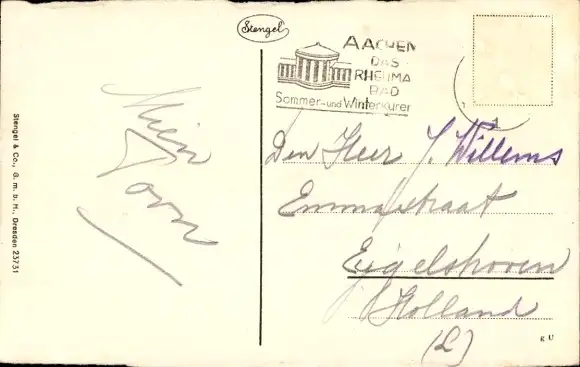 Stengel
AACHEN
DAS
RHEUMA
BAD
Sommer-und Winterkuren
Stengel & Co., G. m. b. H., Dresden 23731
Den Heer J. Willems
Emmastraat
Eygelshoven
Holland
(L)
g U